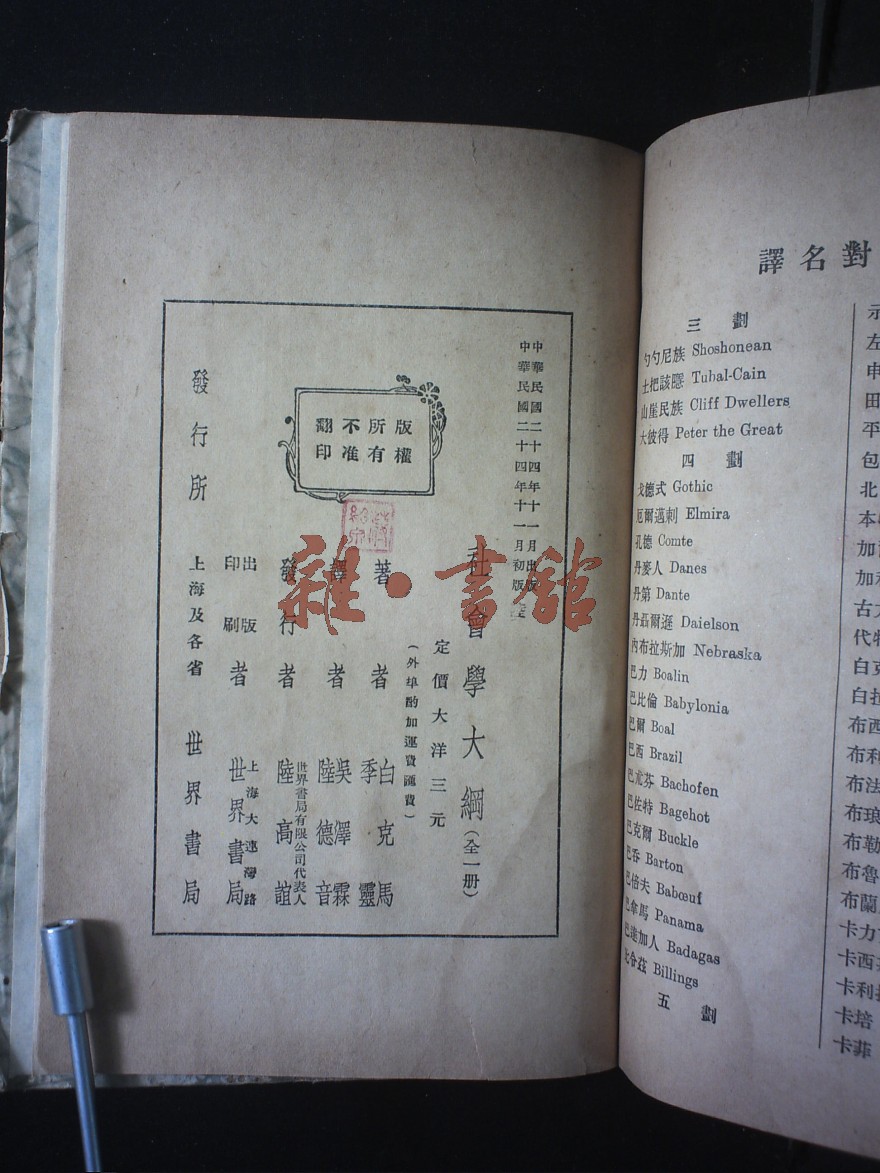 中華民國二十四年十一月出版
中華民國二十四年十一月初版
社會學大綱(全一册)
定價大洋三元
(外埠酌加運費匯費)
版權所有不准翻印
著者 白克馬 季靈
譯者 吳澤霖 陸德音
發行者 世界書局有限公司代表人 陸高誼
出版印刷者 上海大連灣路 世界書局
發行所 上海及各省 世界書局
雜·書館
譯名對
三劃
勺勺尼族 Shoshonean
土把該隱 Tubal-Cain
山崖民族 Cliff Dwellers
大彼得 Peter the Great
四劃
戈德式 Gothic
厄爾邁刺 Elmira
孔德 Comte
丹麥人 Danes
丹第 Dante
丹聶爾遜 Daielson
內布拉斯加 Nebraska
巴力 Boalin
巴比倫 Babylonia
巴爾 Boal
巴西 Brazil
巴尤芬 Bachofen
巴佐特 Bagehot
巴克爾 Buckle
巴吞 Barton
巴倍夫 Babœuf
巴拿馬 Panama
巴達加人 Badagas
比令茲 Billings
五劃
左
申
田
平
包
北
本
加
加
古
代
白克
白拉
布西
布利
布法
布琅
布勒
布魯
布蘭
卡力
卡西
卡利
卡培
卡菲